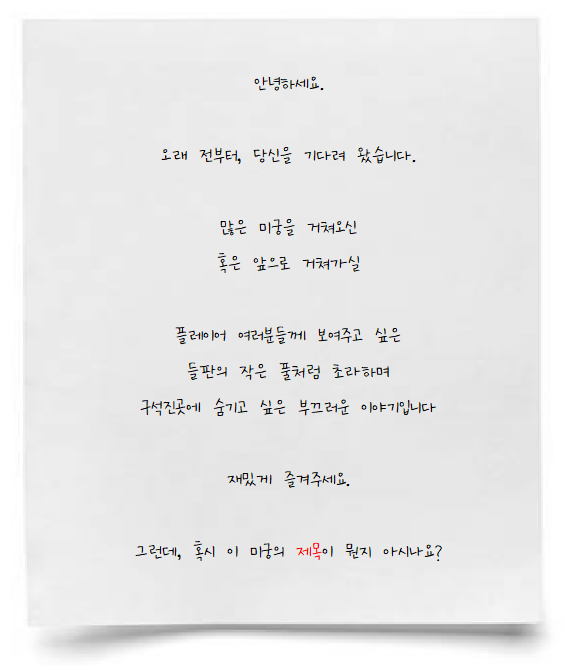 안녕하세요.
오래 전부터, 당신을 기다려 왔습니다.
많은 미궁을 거쳐오신
혹은 앞으로 거쳐가실
플레이어 여러분들께 보여주고 싶은
들판의 작은 풀처럼 초라하며
구석진곳에 숨기고 싶은 부끄러운 이야기입니다
재밌게 즐겨주세요.
그런데, 혹시 이 미궁의 제목이 뭔지 아시나요?